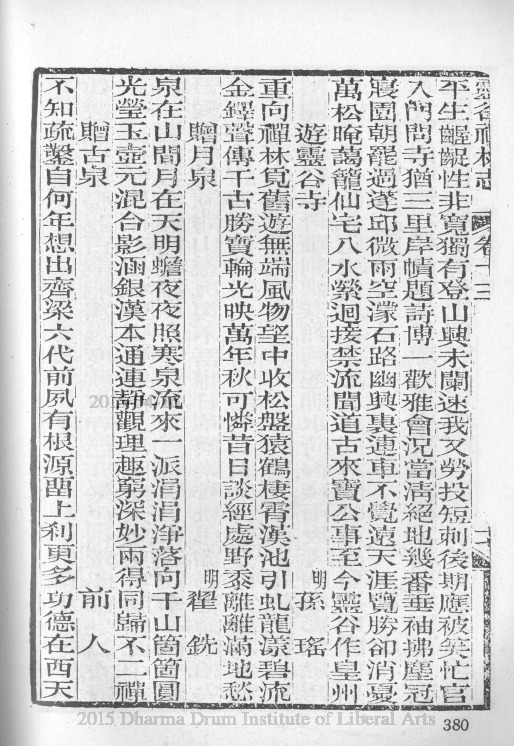 靈谷禪林志 卷十三 十
平生齷齪性非寬獨有登山興未闌迷我又勞投短刺後期應被笑忙官
入門問寺猶三里岸幘題詩博一歡雅會況當清絕地幾番垂袖拂塵冠
寢園朝罷過遂邱微雨空濛石路幽興裏連車不覺遠天涯覽勝卻消憂
萬松晻藹籠仙宅八水縈迴接禁流聞道古來寶公事至今靈谷作皇州
遊靈谷寺 明 孫瑤
重向禪林覓舊遊無端風物望中收松盤猿鶴棲霄漢池引虬龍漾碧流
金鐸聲傳千古勝寶輪光映萬年秋可憐昔日談經處野黍離離滿地愁
贈月泉 明 翟銑
泉在山間月在天明蟾夜夜照寒泉流來一派涓涓淨落向千山箇箇圓
光瑩玉壺元混合影涵銀漢本通連靜觀理趣窮深妙兩得同歸不二禪
贈古泉 前人
不知疏鑿自何年想出齊梁六代前夙有根源留上刹更多功德在西天
2015 Dharma Drum Institute of Liberal Arts
380